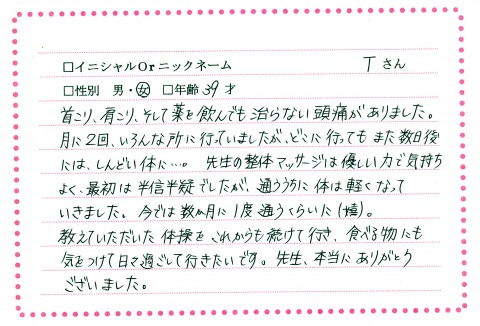 □イニシャルOrニックネーム Tさん
□性別 男・女 □年齢 39才
首こり、肩こり、そして薬を飲んでも治らない頭痛がありました。
月に2回、いろんな所に行っていましたが、どこに行ってもまた数日後
には、しんどい体に…。 先生の整体マッサージは優しい力で気持ち
よく、最初は半信半疑でしたが、通ううちに体は軽くなって
いきました。今では数か月に1度通うくらいに(嬉)。
教えていただいた体操をこれからも続けて行き、食べる物にも
気をつけて日々過ごして行きたいです。先生、本当にありがとう
ございました。